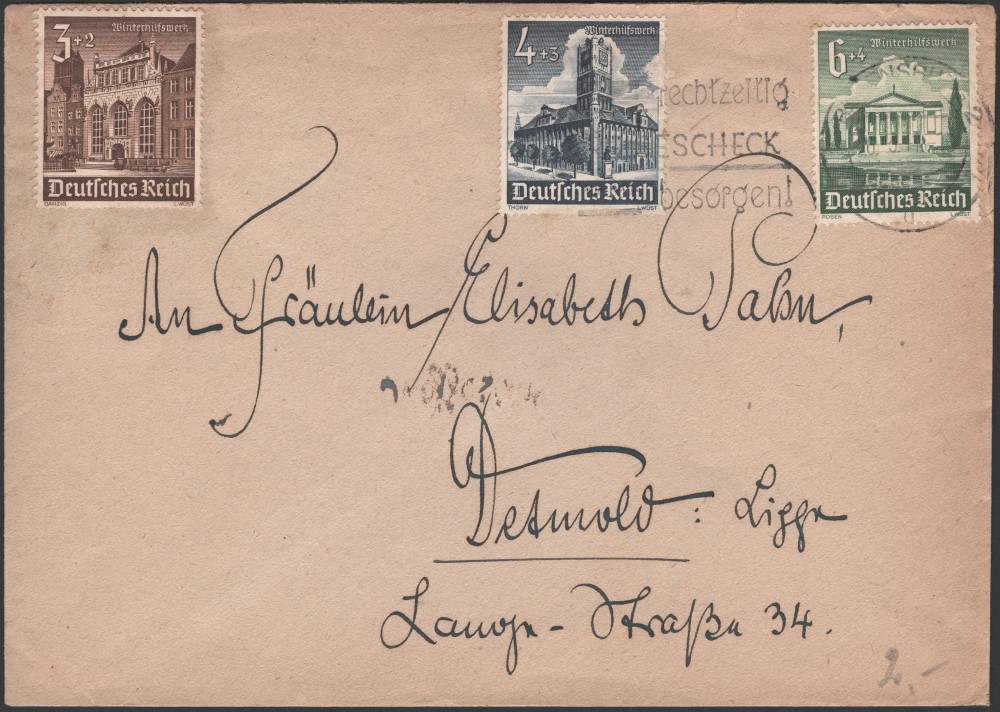 3+2
Winterhilfswerk
Deutsches Reich
DANZIG L.WÜST
4+3
Winterhilfswerk
Deutsches Reich
THORN L.WÜST
6+4
Winterhilfswerk
Deutsches Reich
POSEN L.WÜST
rechtzeitig
ESCHECK
besorgen!
An Fräulein Elisabeth Hahn,
Detmold: Lippe
Lange-Straße 34.
2,-